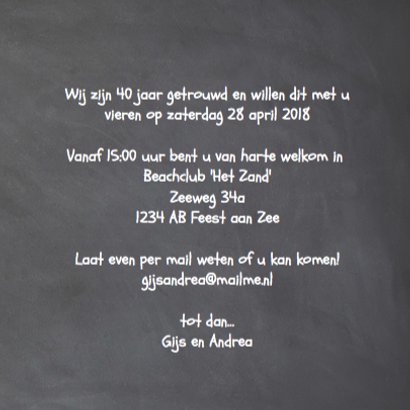 Wij zijn 40 jaar getrouwd en willen dit met u
vieren op zaterdag 28 april 2018
Vanaf 15:00 uur bent u van harte welkom in
Beachclub 'Het Zand'
Zeeweg 34a
1234 AB Feest aan Zee
Laat even per mail weten of u kan komen!
gijsandrea@mailme.nl
tot dan...
Gijs en Andrea